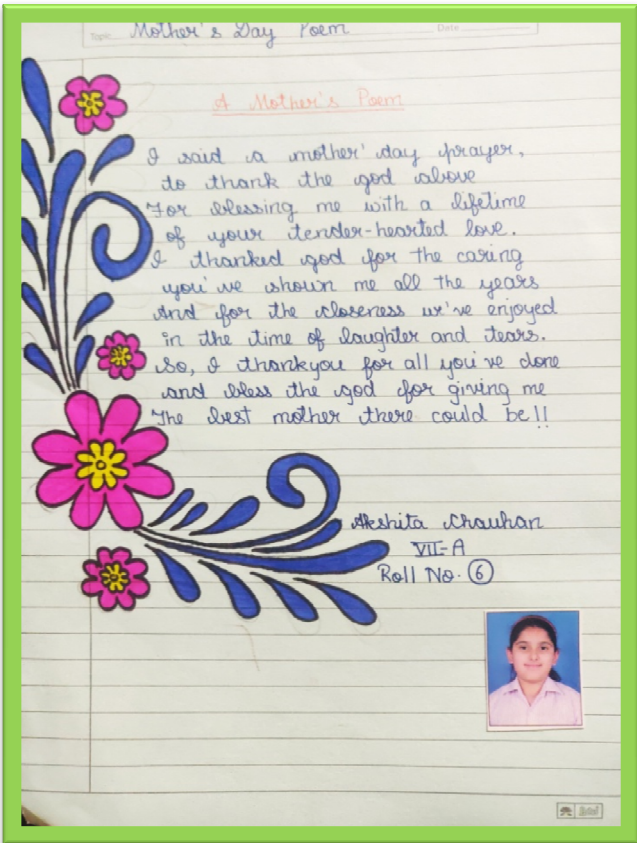 Topic Mother's Day Poem Date
A Mother's Poem
I said a mother' day prayer,
to thank the god above
For blessing me with a lifetime
of your tender-hearted love.
I thanked god for the caring
you've shown me all the years
And for the closeness we've enjoyed
in the time of laughter and tears.
So, I thankyou for all you've done
and bless the god for giving me
The best mother there could be!!
Akshita Chauhan
VII-A
Roll No. 6